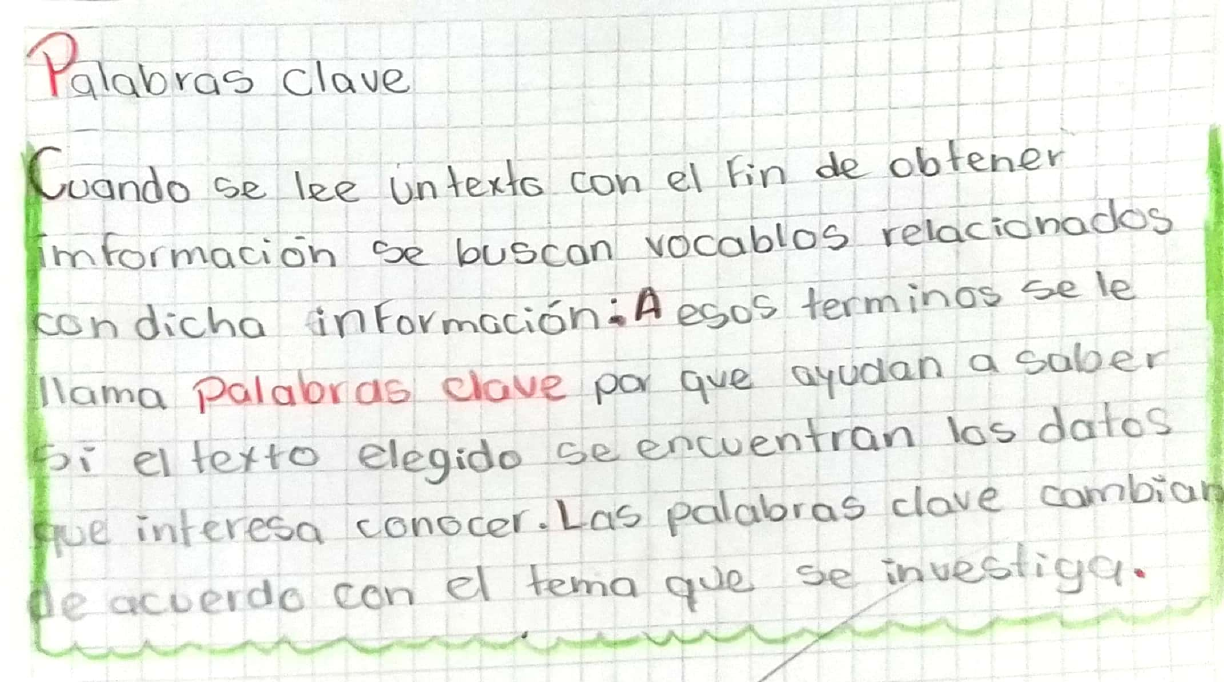 Palabras clave
Cuando se lee un texto con el fin de obtener
imformación se buscan vocablos relacionados
con dicha información: A esos terminos se le
llama palabras clave por que ayudan a saber
si el texto elegido se encuentran los datos
que interesa conocer. Las palabras clave cambian
de acuerdo con el tema que se investiga.